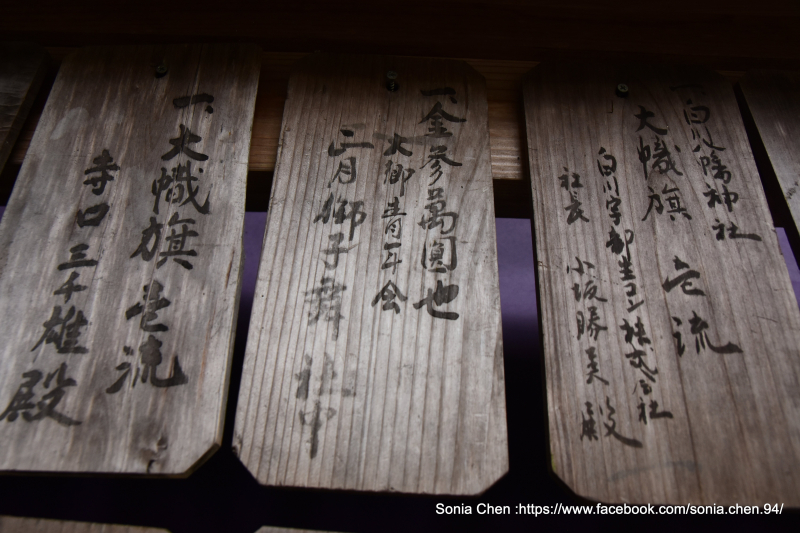 一、白八幡神社
大幟旗 壱流
白川宇部生コン株式会社
社長 小坂勝美殿
一、金参萬圓也
大郷青年会
正月獅子舞社中
一、大幟旗 壱流
寺口三千雄殿
Sonia Chen :https://www.facebook.com/sonia.chen.94/